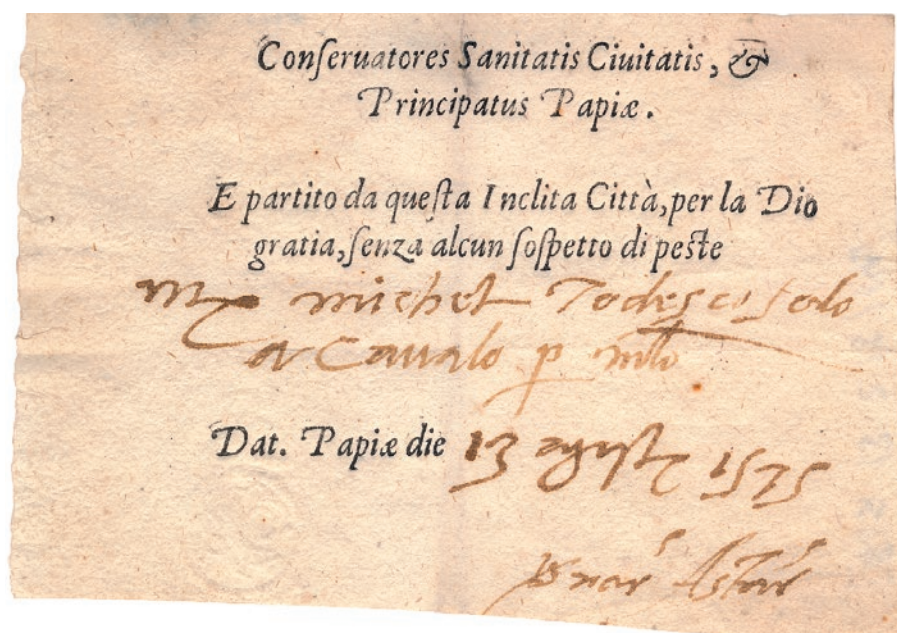 Conſeruatores Sanitatis Ciuitatis, &
Principatus Papiæ.
E partito da queſta Inclita Città, per la Dio
gratia, ſenza alcun ſoſpetto di peſte
michel Todesco ſolo
a Caualo p mlo
Dat. Papiæ die 13 agoſto 1575